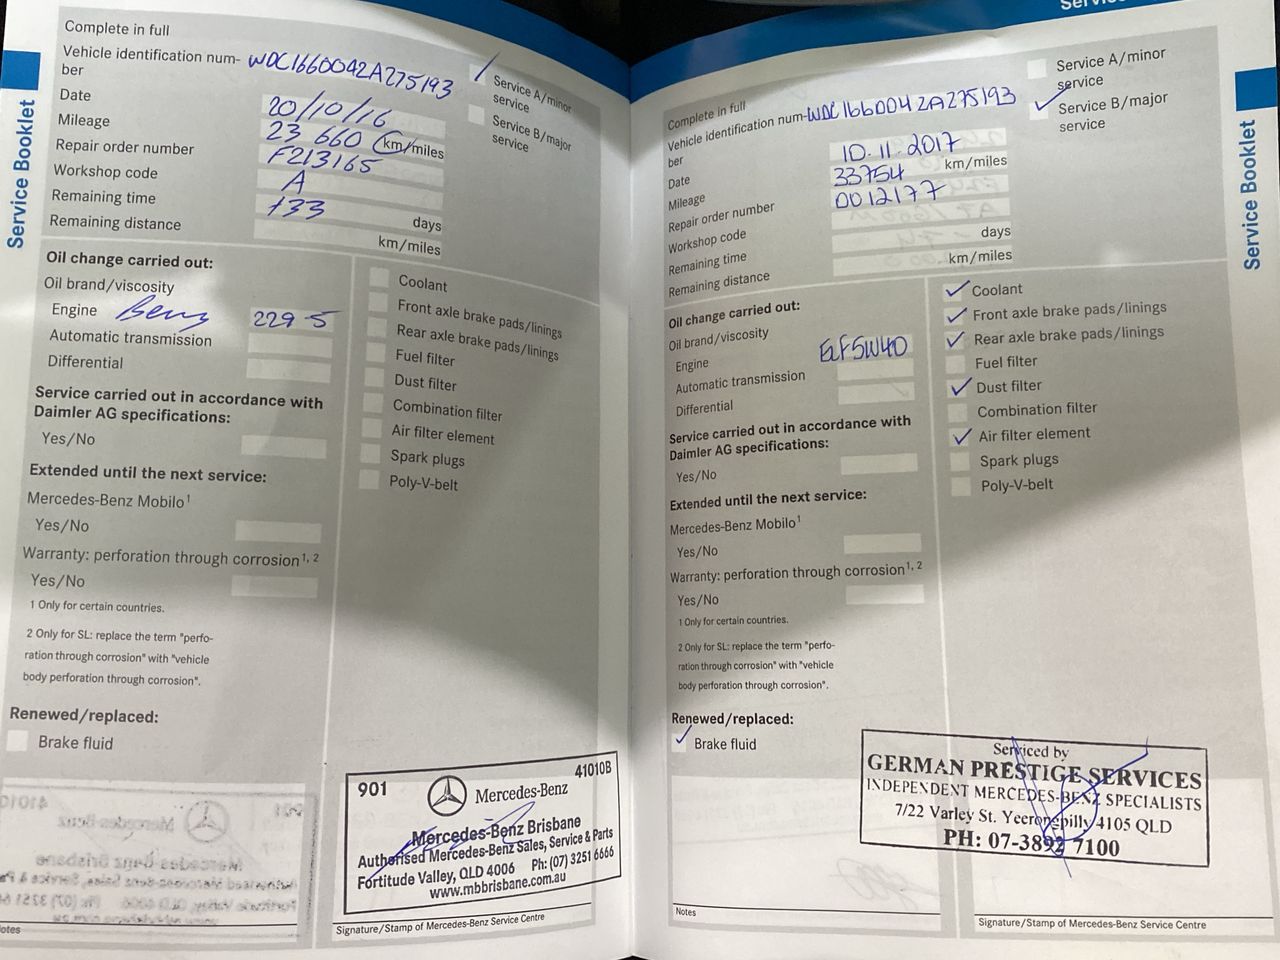 Service Booklet
Complete in full
Vehicle identification num-
ber
WDC1660042A275193
Service A/minor
service
Service B/major
service
Date 20/10/16
Mileage 23 660 km/miles
Repair order number F213165
Workshop code A
Remaining time 133 days
Remaining distance km/miles
Oil change carried out:
Oil brand/viscosity
Engine Benz 229 5
Automatic transmission
Differential
Service carried out in accordance with
Daimler AG specifications:
Yes/No
Extended until the next service:
Mercedes-Benz Mobilo1
Yes/No
Warranty: perforation through corrosion1, 2
Yes/No
1 Only for certain countries.
2 Only for SL: replace the term "perfo-
ration through corrosion" with "vehicle
body perforation through corrosion".
Renewed/replaced:
Brake fluid
Coolant
Front axle brake pads/linings
Rear axle brake pads/linings
Fuel filter
Dust filter
Combination filter
Air filter element
Spark plugs
Poly-V-belt
901 41010B
Mercedes-Benz
Mercedes-Benz Brisbane
Authorised Mercedes-Benz Sales, Service & Parts
Fortitude Valley, QLD 4006 Ph: (07) 3251 6666
www.mbbrisbane.com.au
Signature/Stamp of Mercedes-Benz Service Centre
Complete in full
Vehicle identification num-
ber
WDC1660042A275193
Service A/minor
service
Service B/major
service
Date 10.11.2017
Mileage 33754 km/miles
Repair order number 0012177
Workshop code
Remaining time days
Remaining distance km/miles
Oil change carried out:
Oil brand/viscosity
Engine ELF5W40
Automatic transmission
Differential
Service carried out in accordance with
Daimler AG specifications:
Yes/No
Extended until the next service:
Mercedes-Benz Mobilo1
Yes/No
Warranty: perforation through corrosion1, 2
Yes/No
1 Only for certain countries.
2 Only for SL: replace the term "perfo-
ration through corrosion" with "vehicle
body perforation through corrosion".
Renewed/replaced:
Brake fluid
Coolant
Front axle brake pads/linings
Rear axle brake pads/linings
Fuel filter
Dust filter
Combination filter
Air filter element
Spark plugs
Poly-V-belt
Serviced by
GERMAN PRESTIGE SERVICES
INDEPENDENT MERCEDES-BENZ SPECIALISTS
7/22 Varley St. Yeerongpilly 4105 QLD
PH: 07-3892 7100
Notes
Signature/Stamp of Mercedes-Benz Service Centre
Service Booklet